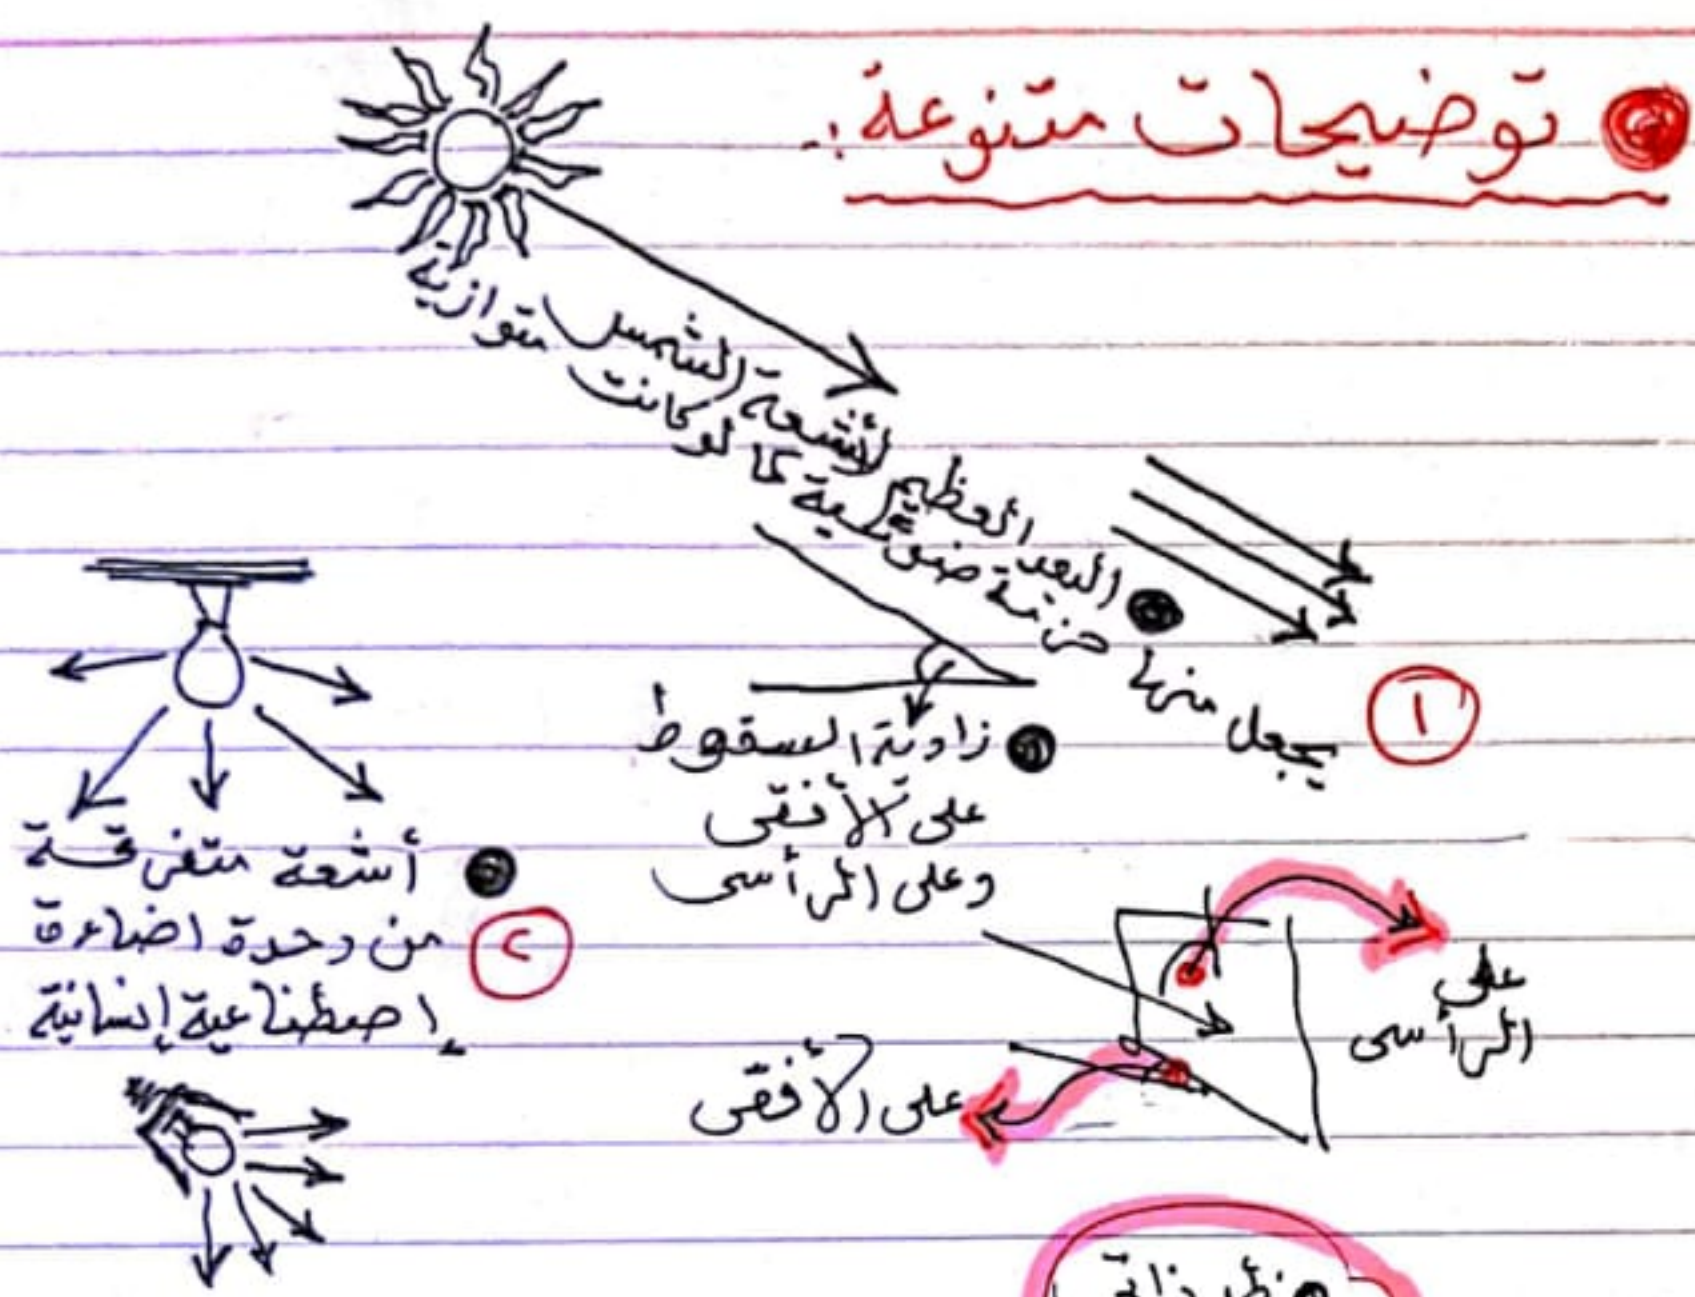 توضيحات متنوعة :.
البعد العظيم لأشعة الشمس
يجعل منها حزمة ضوئية كما لو كانت متوازية
١
زاوية السقوط
على الأفقى
وعلى الرأسى
على
الرأسى
على الأفقى
أشعة متفرقة
من وحدة اضاءة
إصطناعية إنسانية
٢